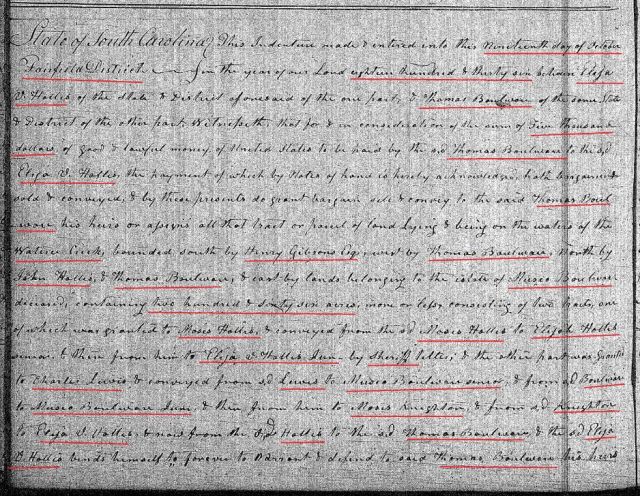 State of South Carolina } This Indenture made & entered into this Nineteenth day of October
Fairfield District } In the year of our Lord eighteen hundred & thirty six between Elija
V Hollis of the State & District aforesaid of the one part, & Thomas Boulware of the same State
& District of the other part, Witnesseth that for & in consideration of the sum of Two thousand
dollars of good & lawful money of United States to be paid by the sd Thomas Boulware to the sd
Elija V. Hollis, the payment of which by Notes of hand is hereby acknowledged, hath bargained
sold & conveyed, & by these presents do grant bargain sell & convey to the said Thomas Boul
ware his heirs or assigns all that tract or parcel of land Lying & being on the waters of the
Wateree Creek, bounded south by Henry Gibsons Esq, west by Thomas Boulware, North by
John Hollis, & Thomas Boulware, & east by lands belonging to the estate of Musco Boulware
deceased, containing two hundred & sixty six acres, more or less consisting of two tracts, one
of which was granted to Moses Hollis, & conveyed from the sd Moses Hollis to Elijah Hollis
senior & then from him to Elija V Hollis Junr by Sheriff titles; & the other part was Granted
to Charles Lewis & conveyed from sd Lewis to Musco Boulware senior, & from sd Boulware
to Musco Boulware Junr, & then from him to Moses Knighton, & from sd Knighton
to Elija V. Hollis, & now from the sd Hollis to the sd Thomas Boulware, & the sd Elija
V Hollis binds himself to forever to Warrant & defend to said Thomas Boulware his heirs